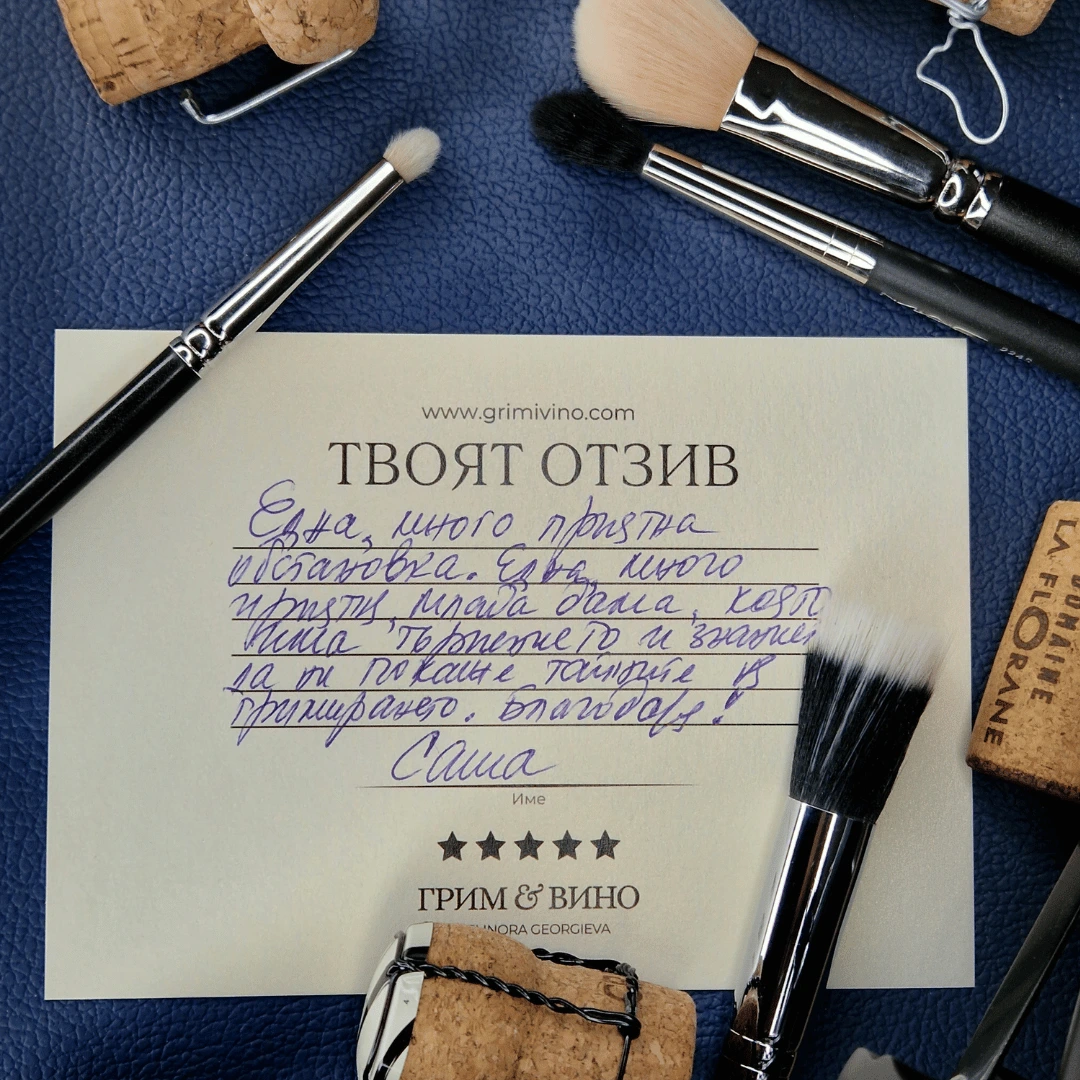 www.grimivino.com
ТВОЯТ ОТЗИВ
Една, много приятна
обстановка. Една, много
приятна, млада дама, която
имаше търпението и знание
да ни покаже тайните в
гримирането. Благодаря!
Саша
Име
ГРИМ & ВИНО
GEORGIEVA
DOMAINE
LA FLORANE